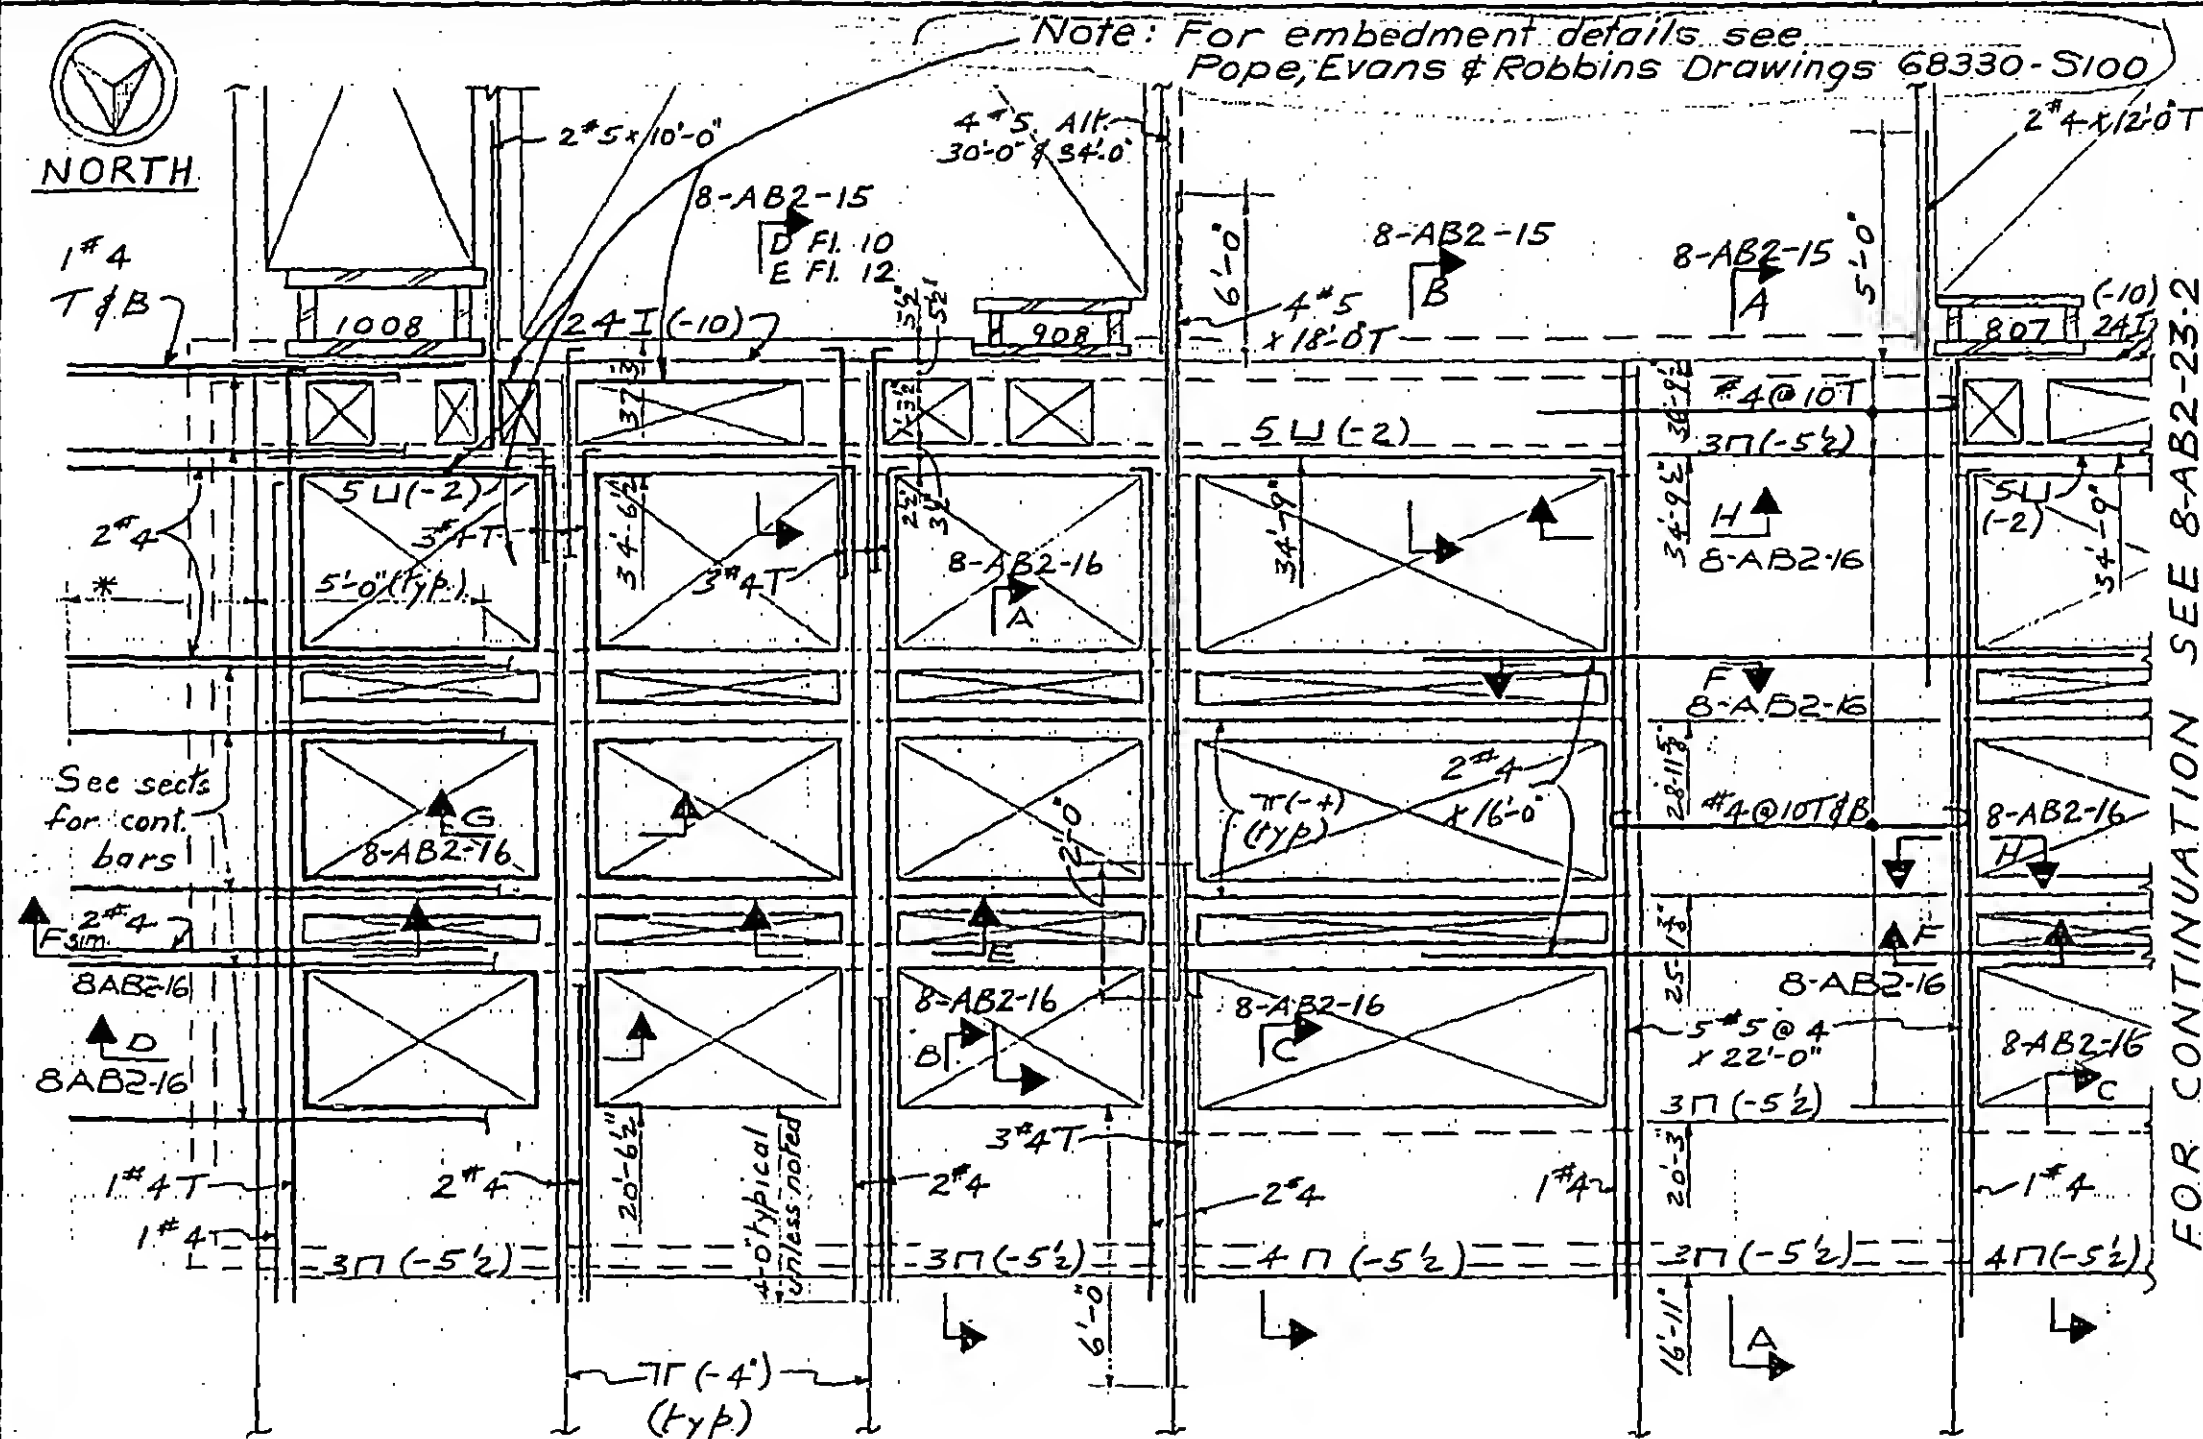 Note: For embedment details see
Pope, Evans & Robbins Drawings 68330-S100
NORTH
2#5x10'-0"
4#5 Alt.
30'-0" & 34'-0"
2#4x12'-0"T
8-AB2-15
D Fl. 10
E Fl. 12
8-AB2-15
B
8-AB2-15
A
6'-0"
5'-0"
1#4
T&B
1008
24I(-10)
908
4#5
x18'-0"T
807
(-10)
24I
5½"
5½"
37'-3"
7'-3½"
5⊔(-2)
36'-9½"
#4@10T
3⊓(-5½)
2#4
5⊔(-2)
3#4T
34'-6½"
3#4T
2½"
3½"
8-AB2-16
A
34'-9"
34'-9½"
H
8-AB2-16
5⊔
(-2)
34'-9"
*
5'-0"(typ.)
F
8-AB2-16
See sects
for cont.
bars
G
8-AB2-16
12'-0"
π(-4)
(typ)
2#4
x16'-0"
28'-11½"
#4@10T&B
8-AB2-16
H
2#4
F sim.
8AB2-16
E
25'-1¾"
F
8-AB2-16
D
8AB2-16
8-AB2-16
B
8-AB2-16
C
5#5@4
x22'-0"
8-AB2-16
C
3⊓(-5½)
1#4T
2#4
20'-6½"
4'-0" typical
unless noted
2#4
3#4T
2#4
1#4
20'-3"
1#4
1#4
3⊓(-5½)
3⊓(-5½)
4⊓(-5½)
3⊓(-5½)
4⊓(-5½)
6'-0"
16'-11"
A
π(-4")
(typ)
FOR CONTINUATION SEE 8-AB2-23-2